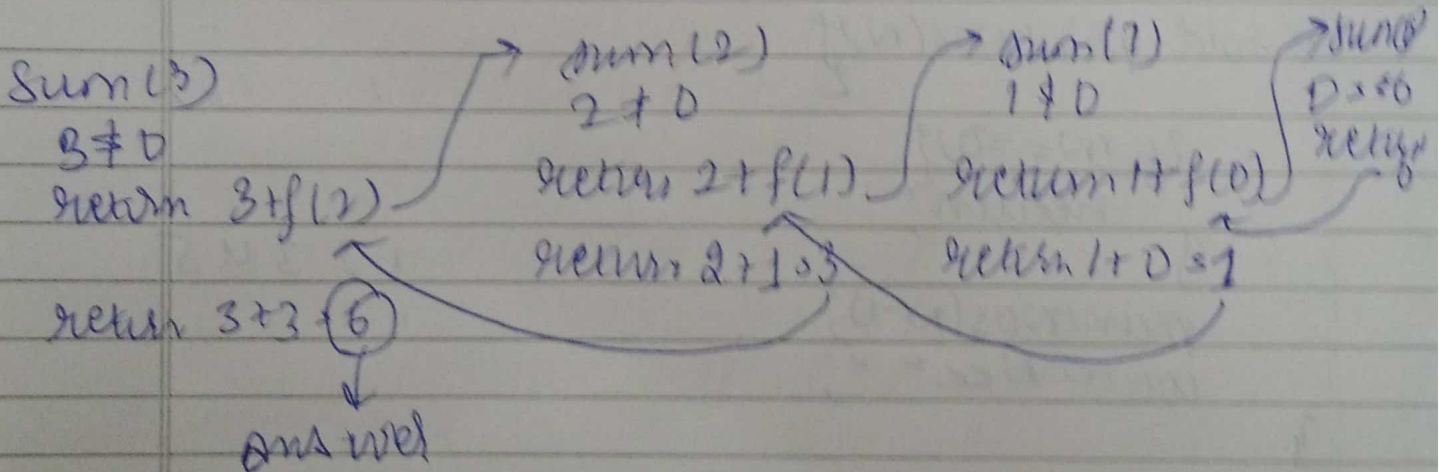 Sum(3)
3 ≠ 0
return 3+f(2)
return 3+3 = 6
answer
sum(2)
2 ≠ 0
return 2+f(1)
return 2+1=3
sum(1)
1 ≠ 0
return 1+f(0)
return 1+0=1
sum(0)
0==0
return
0